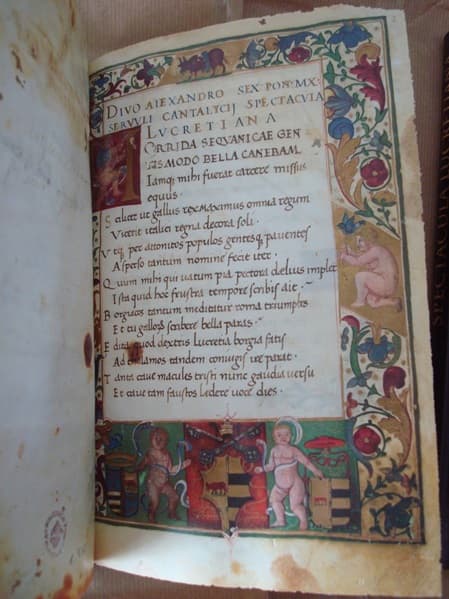 DIVO ALEXANDRO SEX PON MX:
SERVVLI CANTALYCII SPECTACVLA
LVCRETIANA
HORRIDA SEQVANICAE GEN
TIS MODO BELLA CANEBAM
Iamq; mihi fuerat carcere missus
equus.
Scilicet ut gallus rex maxumus omnia regum
Vicerit italici regna decora soli.
Vtq; per attonitos populos gentesq; pauentes
Aspero tantum nomine fecit iter.
Quum mihi qui uatum pia pectora delius implet
Ista quid hoc frustra tempore scribis ait.
Borgiacos tantum meditetur roma triumphos
Et tu gallorum scribere bella paras.
Edita quod dextris lucretia borgia fatis
Ad thalamos tandem coniugis ire parat.
Tanta caue macules tristi nunc gaudia uersu
Et caue tam faustos ledere uoce dies.
SPECTACULA LUCRETIANA